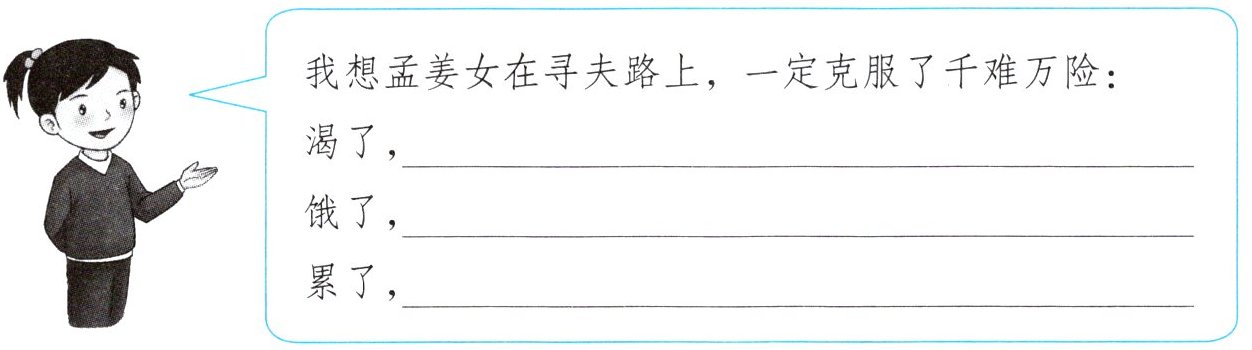 我想孟姜女在寻夫路上，一定克服了千难万险：
渴了，
饿了，
累了，